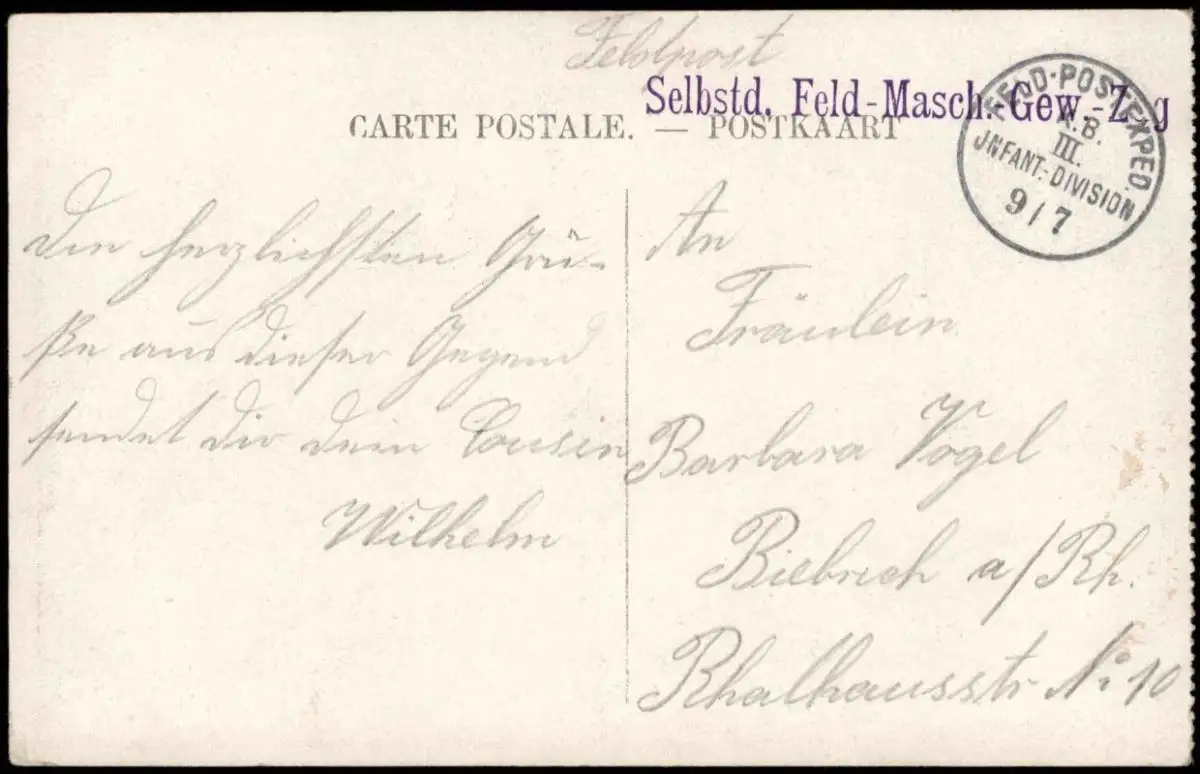 Feldpost
Selbstd. Feld-Masch.-Gew.-Zug
CARTE POSTALE. — POSTKAART
FELD-POSTEXPED.
K.B.
III.
JNFANT.-DIVISION
9/7
Die herzlichsten Grü-
ße aus dieser Gegend
sendet dir dein Cousin
Wilhelm
An
Fräulein
Barbara Vogel
Biebrich a/Rh.
Rhathausstr No 10